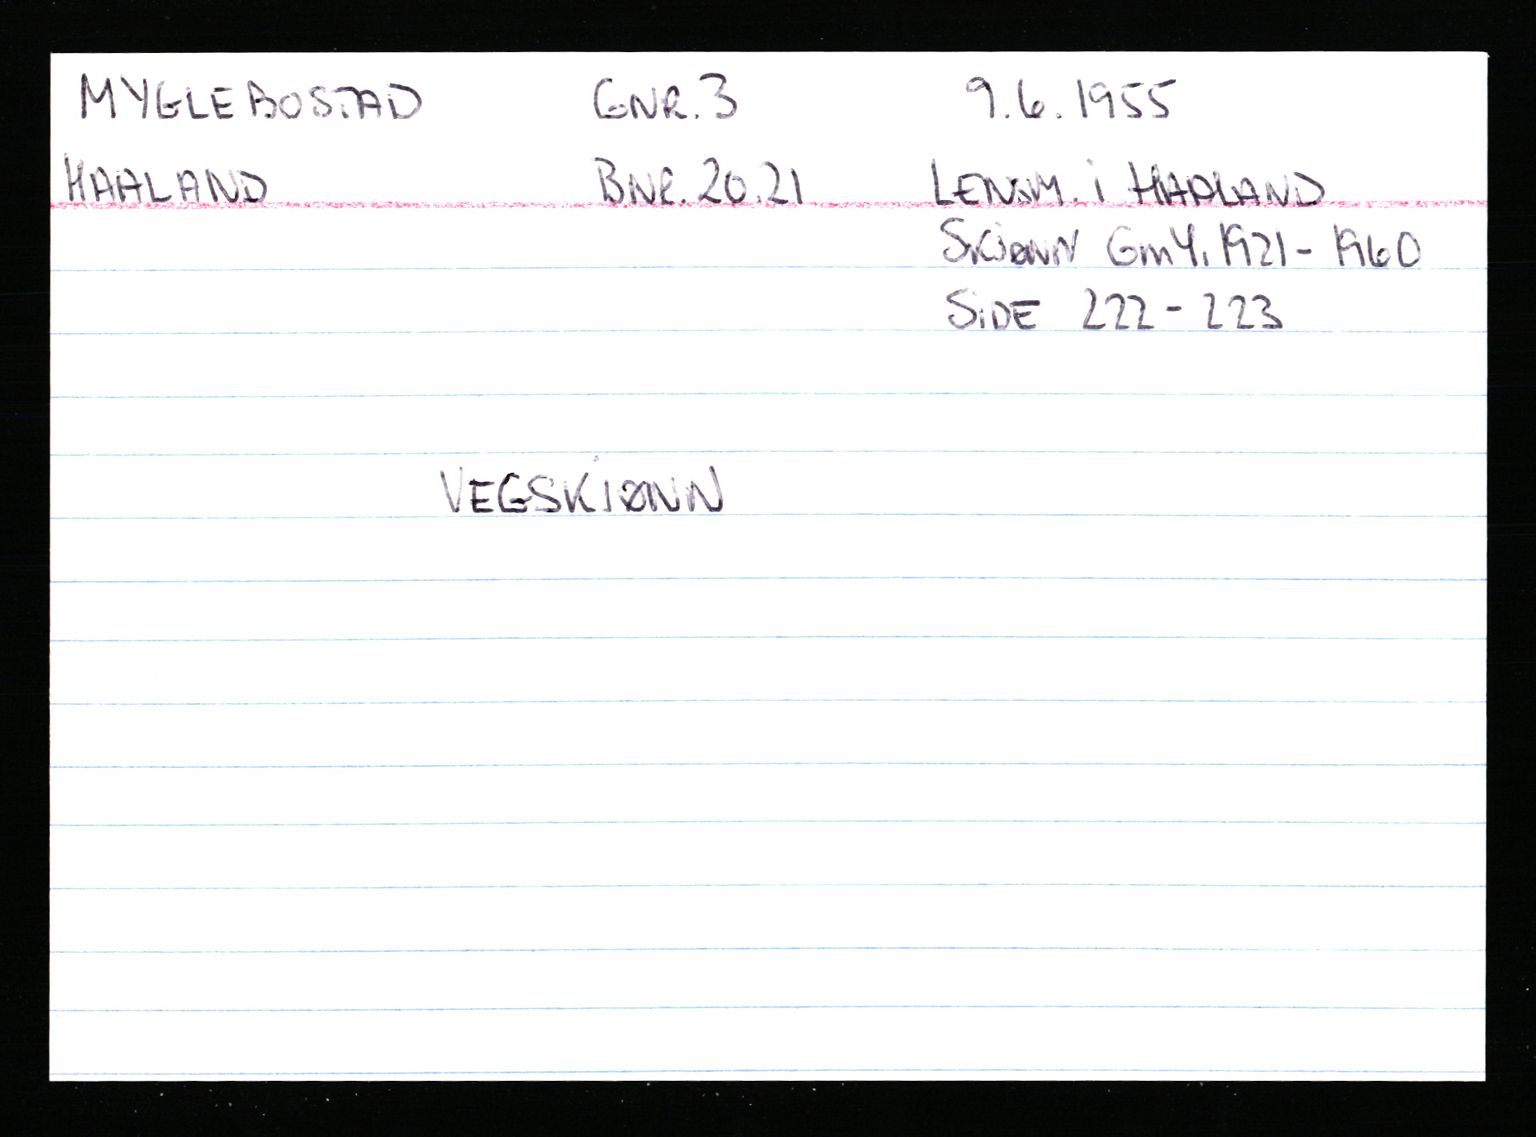 MYGLEBOSTAD GNR. 3 9.6.1955
HAALAND BNR. 20.21 LENSM. i HAALAND
SKJØNN 1921 - 1960
SiDE 222 - 223
VEGSKJØNN